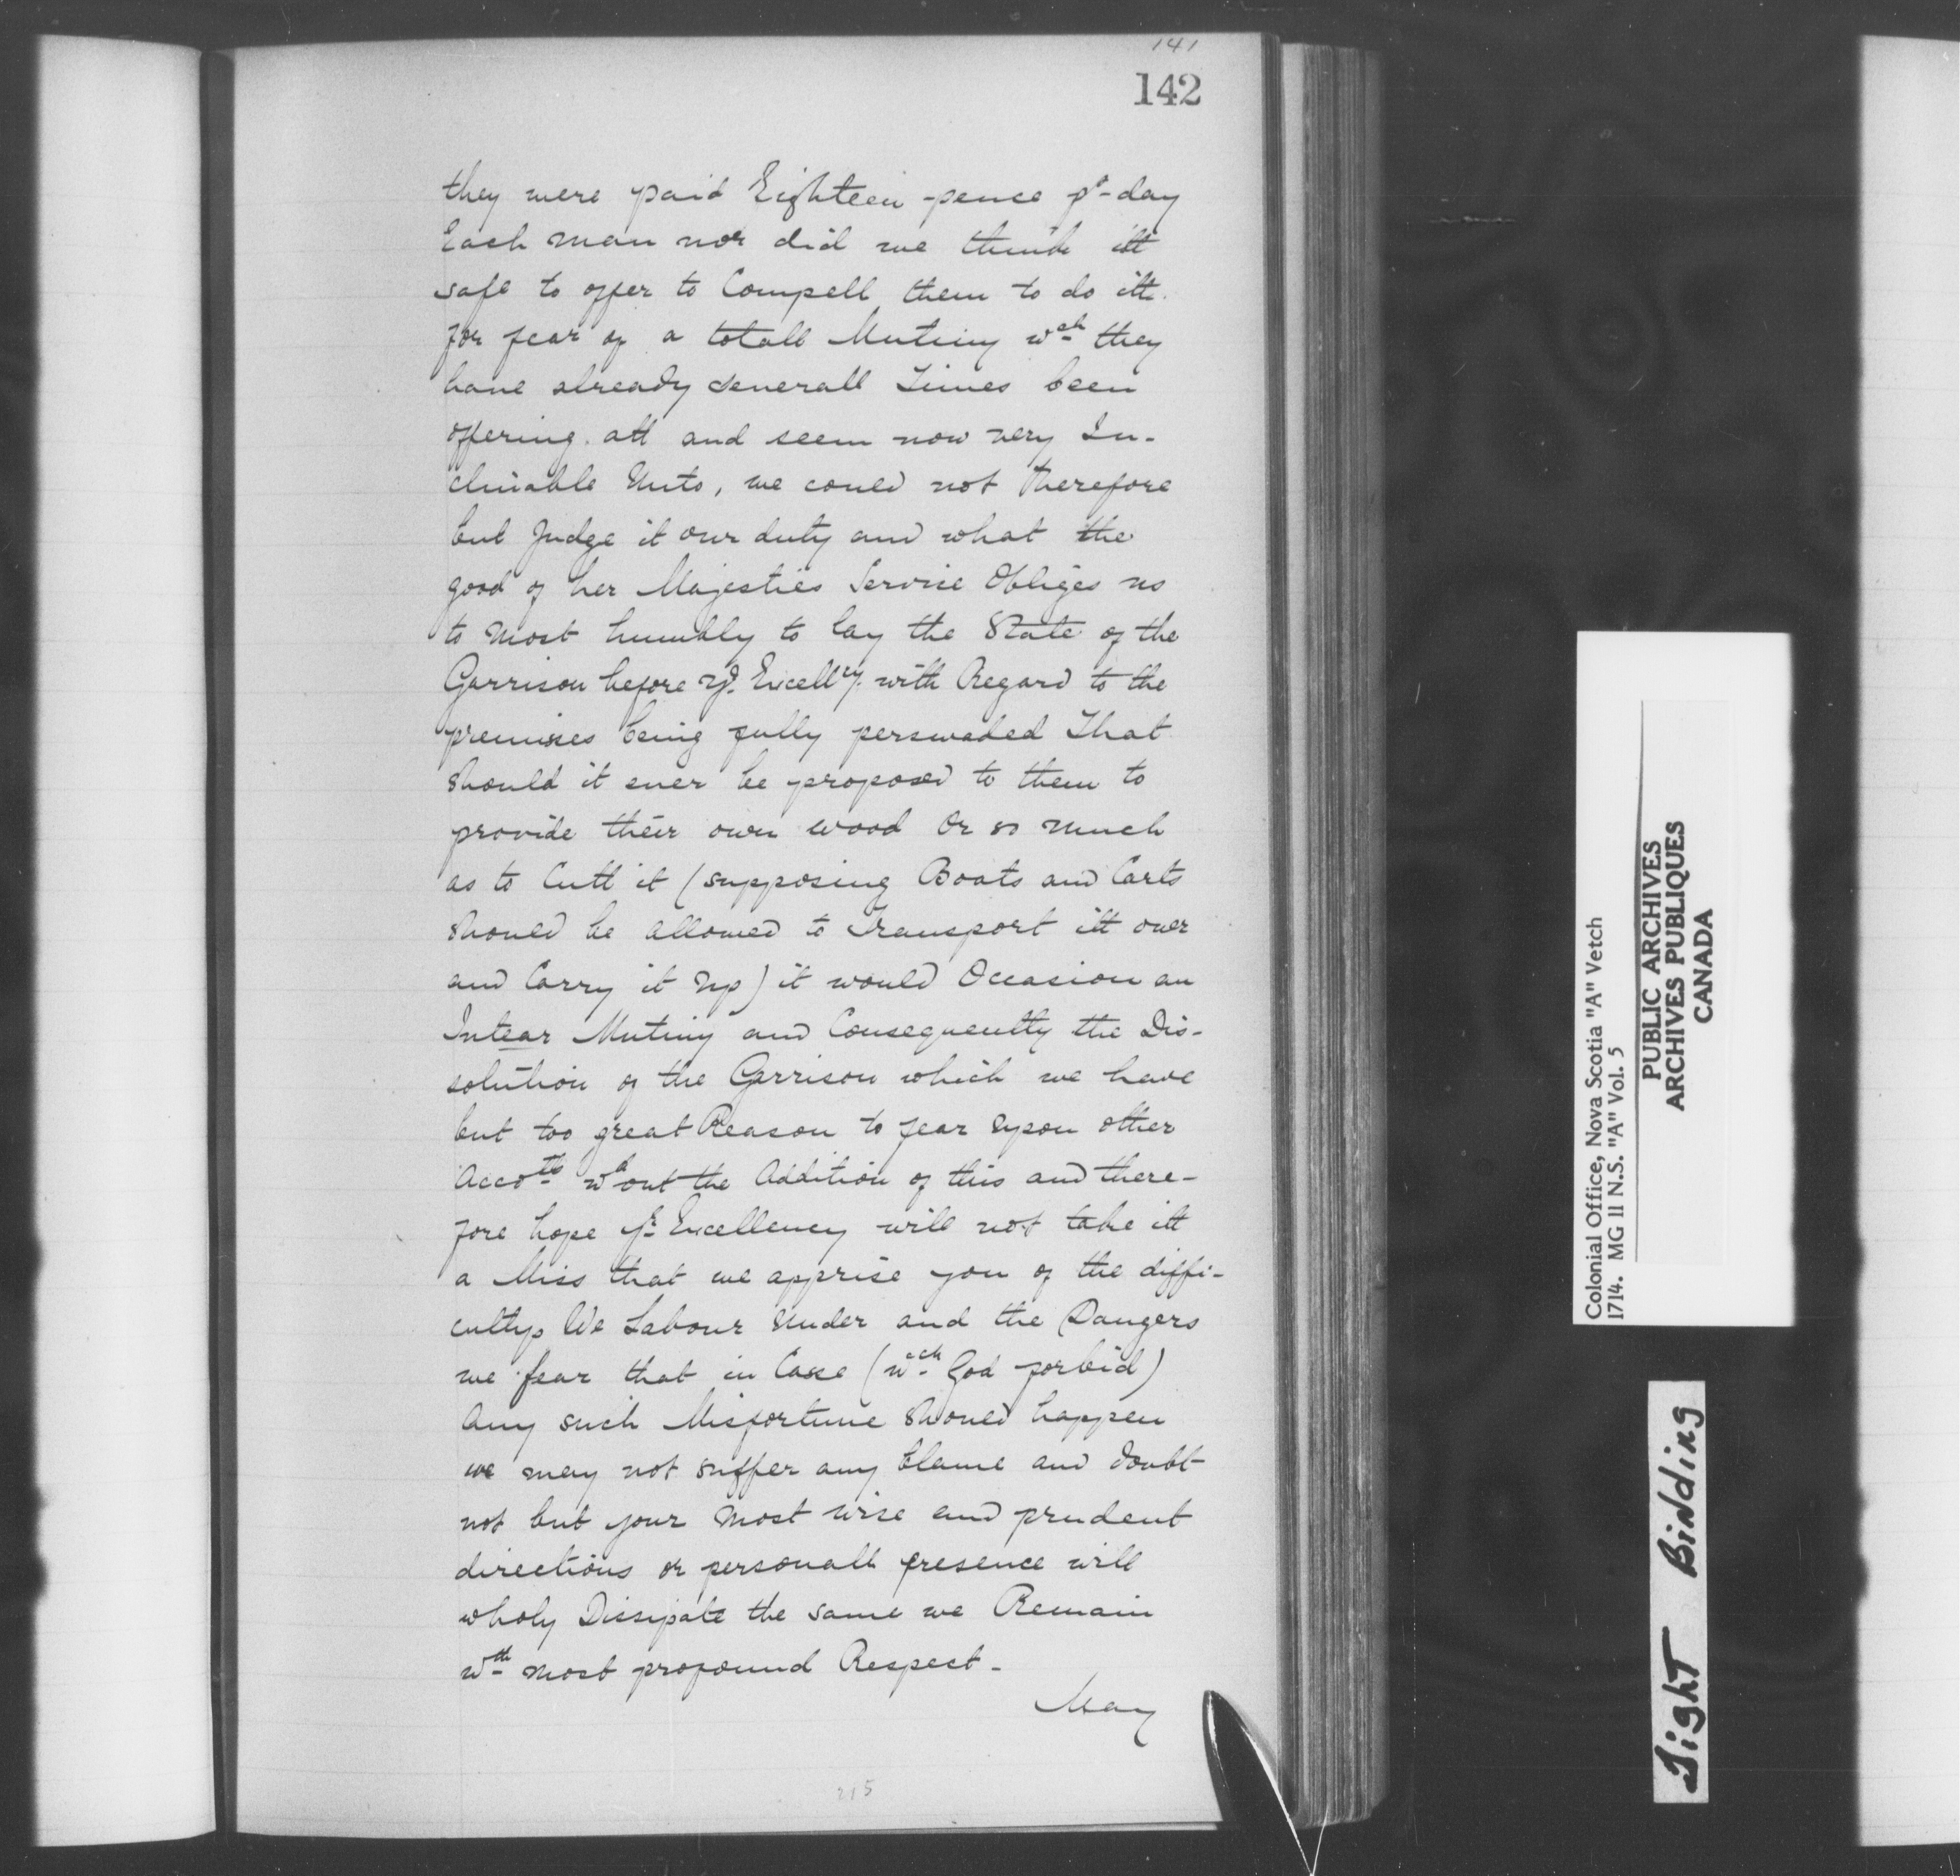 141
142
they were paid Eighteen-pence pr-day
Each man nor did we think itt
safe to offer to Compell them to do itt.
for fear of a totall Mutiny wch they
have already severall Times been
offering att and seem now very In-
clinable Unto, we could not therefore
but Judge it our duty and what the
good of her Majesties Service Obliges us
to most humbly to lay the State of the
Garrison before yr. Excellcy. with Regard to the
premises being fully perswaded That
should it ever be proposed to them to
provide their own wood Or so much
as to Cutt it (supposing Boats and Carts
should be allowed to Transport itt over
and Carry it Up) it would Occasion an
Intear Mutiny and Consequently the Dis-
solution of the Garrison which we have
but too great Reason to fear upon other
Accots wthout the Addition of this and there-
fore hope yr Excellency will not take itt
a Miss that we apprise you of the diffi-
cultys We Labour Under and the Dangers
we fear that in Case (wch God forbid)
Any such Misfortune should happen
we may not suffer any blame and doubt
not but your most wise and prudent
directions or personall presence will
wholy Dissipate the same we Remain
wth most profound Respect-
May
215
Colonial Office, Nova Scotia "A" Vetch
1714. MG 11 N.S. "A" Vol. 5
PUBLIC ARCHIVES
ARCHIVES PUBLIQUES
CANADA
Tight Binding